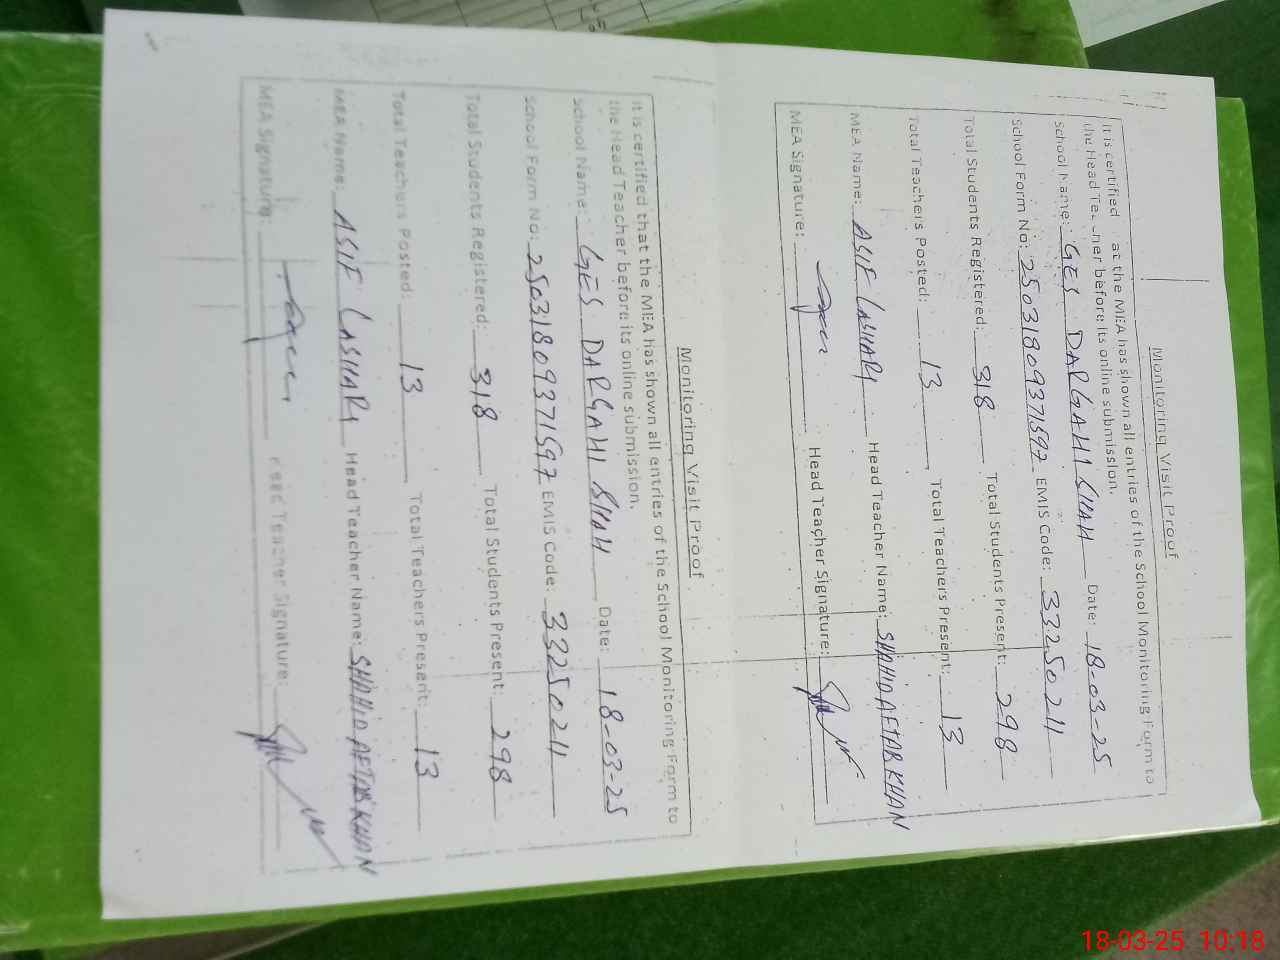 Monitoring Visit Proof
It is certified at the MEA has shown all entries of the School Monitoring Form to
the Head before its online submission.
School Name: GES DARGAHI SHAH Date: 18-03-25
School Form No: 25031809371597 EMIS Code: 33250211
Total Students Registered: 318 Total Students Present: 298
Total Teachers Posted: 13 Total Teachers Present: 13
MEA Name: ASIF LASHARI Head Teacher Name: SHAHID AFTAB KHAN
MEA Signature: Head Teacher Signature:
Monitoring Visit Proof
It is certified that the MEA has shown all entries of the School Monitoring Form to
the Head Teacher before its online submission.
School Name: GES DARGAHI SHAH Date: 18-03-25
School Form No: 25031809371597 EMIS Code: 33250211
Total Students Registered: 318 Total Students Present: 298
Total Teachers Posted: 13 Total Teachers Present: 13
MEA Name: ASIF LASHARI Head Teacher Name: SHAHID AFTAB KHAN
MEA Signature: Head Teacher Signature:
18-03-25 10:18